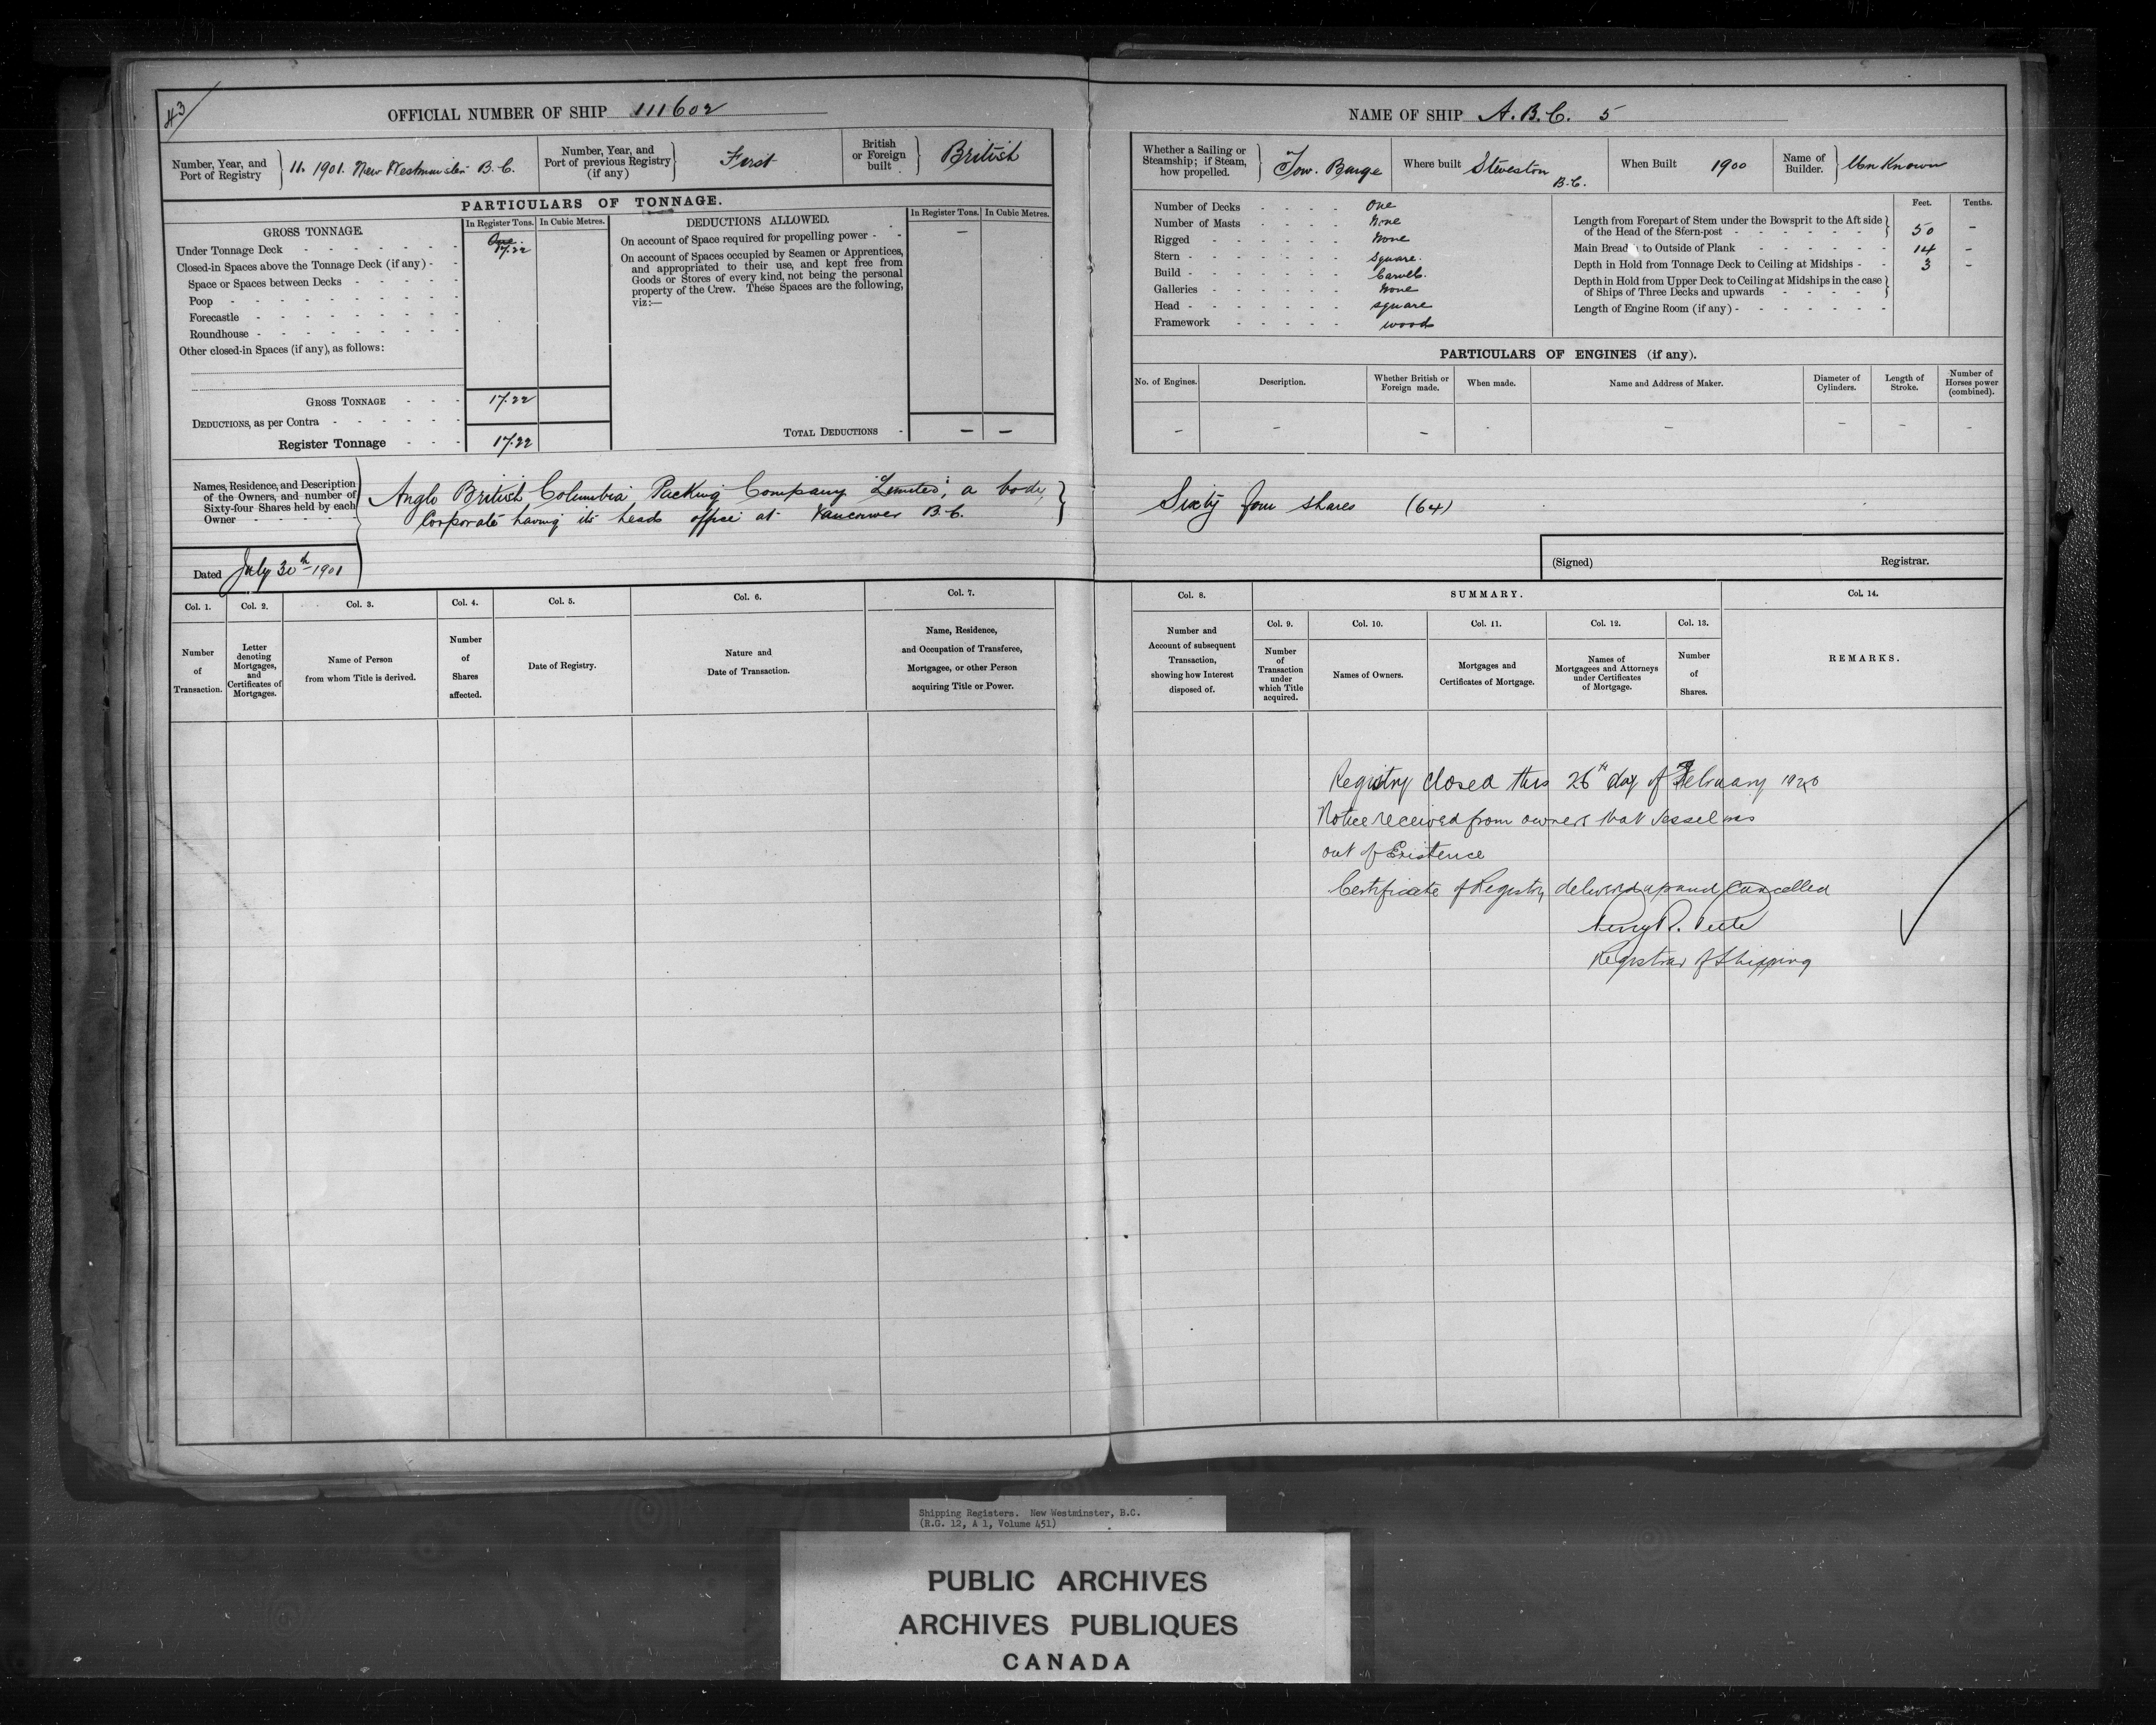 43
OFFICIAL NUMBER OF SHIP 111602
Number, Year, and Port of Registry
11. 1901. New Westminster B.C.
Number, Year, and Port of previous Registry (if any)
First
British or Foreign built
British
PARTICULARS OF TONNAGE.
GROSS TONNAGE.
In Register Tons. In Cubic Metres.
Under Tonnage Deck 17.22
Closed-in Spaces above the Tonnage Deck (if any)
Space or Spaces between Decks
Poop
Forecastle
Roundhouse
Other closed-in Spaces (if any), as follows:
GROSS TONNAGE 17.22
DEDUCTIONS, as per Contra
Register Tonnage 17.22
DEDUCTIONS ALLOWED.
In Register Tons. In Cubic Metres.
On account of Space required for propelling power - —
On account of Spaces occupied by Seamen or Apprentices,
and appropriated to their use, and kept free from
Goods or Stores of every kind, not being the personal
property of the Crew. These Spaces are the following,
viz:—
TOTAL DEDUCTIONS - — —
Names, Residence, and Description
of the Owners, and number of
Sixty-four Shares held by each
Owner
Anglo British Columbia Packing Company "Limited", a body
Corporate having its heads office at Vancouver B.C.
Dated July 30th 1901
Col. 1. Col. 2. Col. 3. Col. 4. Col. 5. Col. 6. Col. 7.
Number of Transaction.
Letter denoting Mortgages, and Certificates of Mortgages.
Name of Person from whom Title is derived.
Number of Shares affected.
Date of Registry.
Nature and Date of Transaction.
Name, Residence, and Occupation of Transferee, Mortgagee, or other Person acquiring Title or Power.
NAME OF SHIP A.B.C. 5
Whether a Sailing or Steamship; if Steam, how propelled.
Tow. Barge
Where built Steveston B.C.
When Built 1900
Name of Builder.
Unknown
Number of Decks One
Number of Masts None
Rigged None
Stern Square.
Build Carvel.
Galleries None
Head square
Framework wood
Feet. Tenths.
Length from Forepart of Stem under the Bowsprit to the Aft side
of the Head of the Stern-post 50 -
Main Breadth to Outside of Plank 14 -
Depth in Hold from Tonnage Deck to Ceiling at Midships 3 -
Depth in Hold from Upper Deck to Ceiling at Midships in the case
of Ships of Three Decks and upwards
Length of Engine Room (if any)
PARTICULARS OF ENGINES (if any).
No. of Engines. Description. Whether British or Foreign made. When made. Name and Address of Maker. Diameter of Cylinders. Length of Stroke. Number of Horses power (combined).
– – – – – – – –
Sixty four shares (64)
(Signed) Registrar.
Col. 8. SUMMARY. Col. 14.
Col. 9. Col. 10. Col. 11. Col. 12. Col. 13.
Number and Account of subsequent Transaction, showing how Interest disposed of.
Number of Transaction under which Title acquired.
Names of Owners.
Mortgages and Certificates of Mortgage.
Names of Mortgagees and Attorneys under Certificates of Mortgage.
Number of Shares.
REMARKS.
Registry closed this 26th day of February 1920
Notice received from owners that Vessel was
out of Existence
Certificate of Registry delivered up and cancelled
Registrar of Shipping
Shipping Registers. New Westminster, B.C.
(R.G. 12, A 1, Volume 451)
PUBLIC ARCHIVES
ARCHIVES PUBLIQUES
CANADA